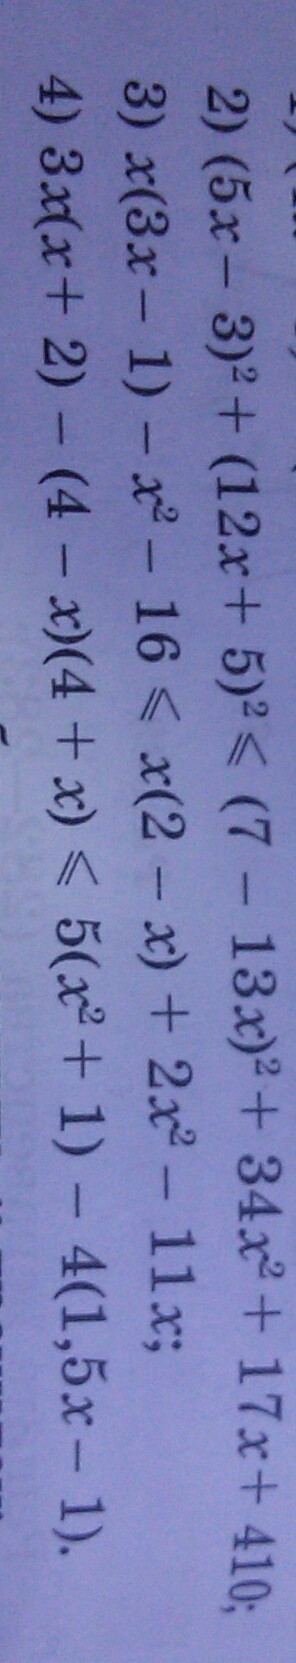 2) (5x – 3)² + (12x + 5)² ⩽ (7 – 13x)² + 34x² + 17x + 410;
3) x(3x – 1) – x² – 16 ⩽ x(2 – x) + 2x² – 11x;
4) 3x(x + 2) – (4 – x)(4 + x) ⩽ 5(x² + 1) – 4(1,5x – 1).